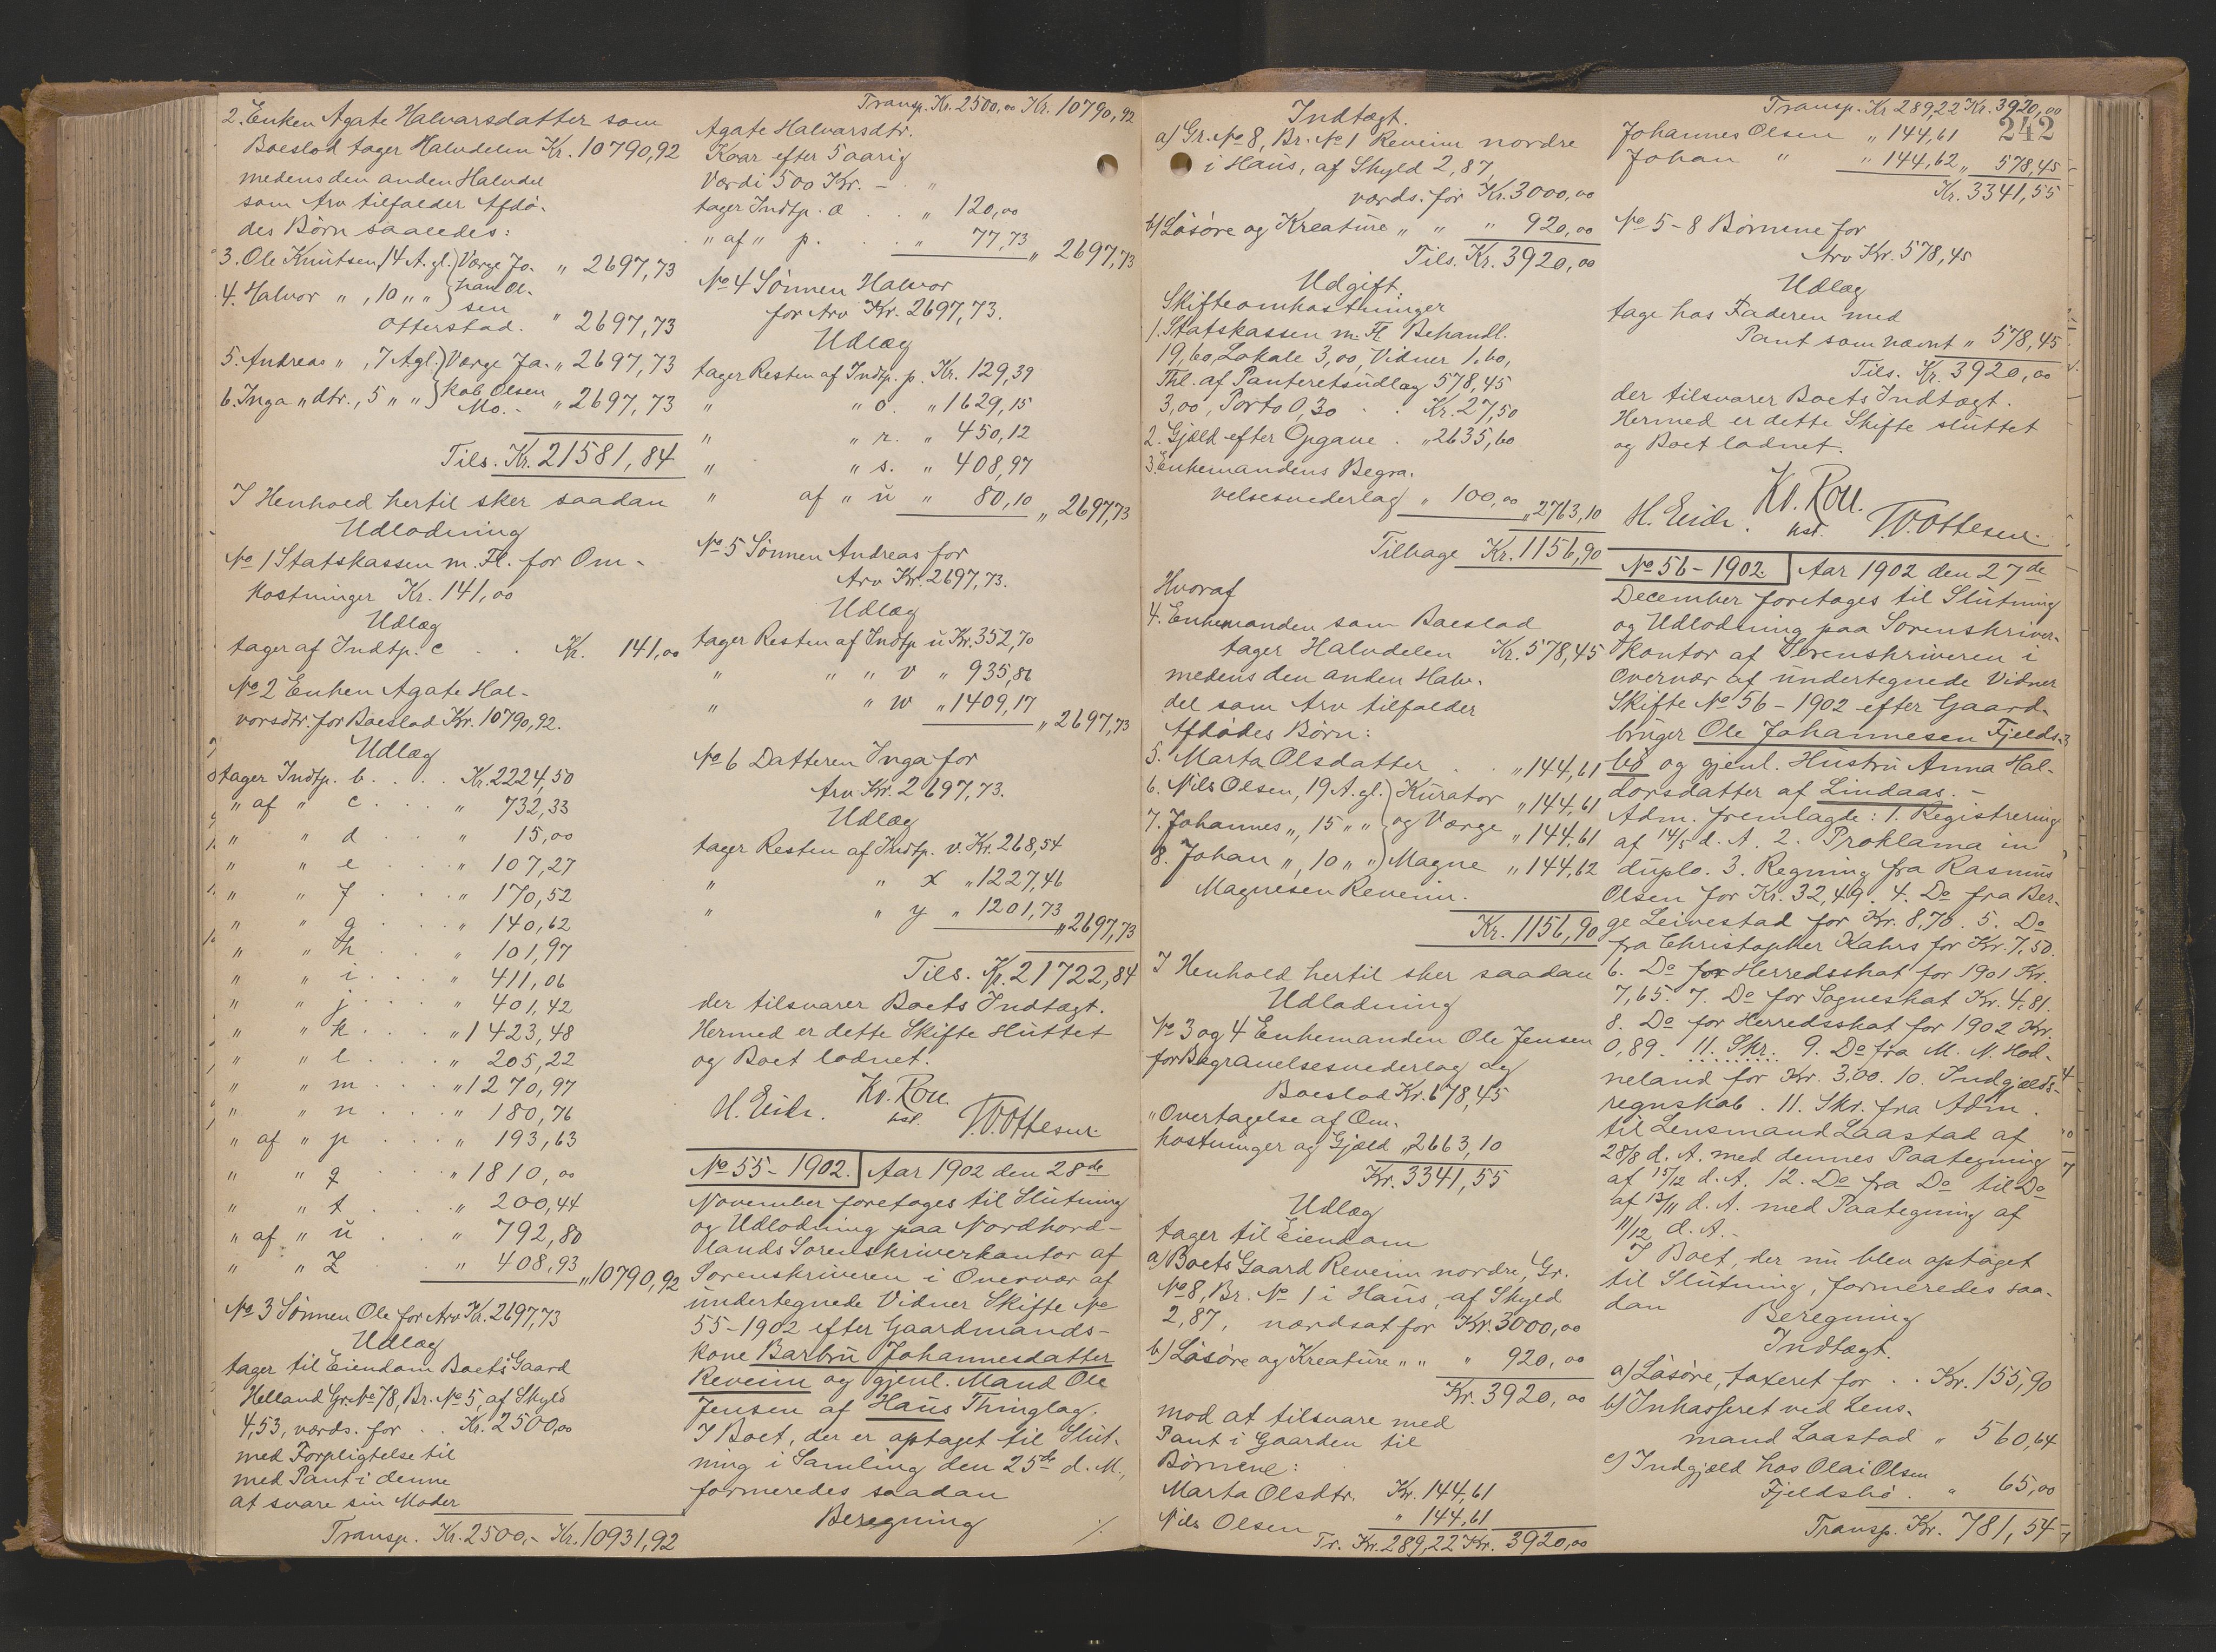 2. Enken Agate Halvarsdatter som
Boeslod tager Halvdelen Kr. 10790,92
medens den anden Halvdel
som Arv tilfalder Afdö-
des Börn saaledes:
3. Ole Knutsen, 14 A. gl. } Værge Jo- " 2697,73
4. Halvor " , 10 " " } han Ol-
sen
Otterstad. " 2697,73
5. Andreas " , 7 A gl. } Værge Ja- " 2697,73
6. Inga " dtr., 5 " " } kob Olsen
Mo. - " 2697,73
Tils. Kr. 21581,84
I Henhold hertil sker saadan
Udlodning
No 1 Statskassen m. Fl. for Om-
kostninger Kr. 141,00
Udlæg
tager af Indtp. c . . Kr. 141,00
No 2 Enken Agate Hal-
vorsdtr. for Boeslod Kr. 10790,92.
Udlæg
tager Indtp. b. . . . Kr. 2224,50
" af " c . . . " 732,33
" " d . . " 15,00
" " e . . . " 107,27
" " f . . . " 170,52
" " g . . . " 140,62
" " h . . . " 101,97
" " i . . . " 411,06
" " j . . . " 401,42
" " k . . . " 1423,48
" " l . . . " 205,22
" " m . . . " 1270,97
" " n . . . " 180,76
" af " p . . . " 193,63
" " q . . . " 1810,00
" " t . . . " 200,44
" af " u . . " 792,80
" " z . . " 408,93 " 10790,92
No 3 Sönnen Ole for Arv Kr. 2697,73
Udlæg
tager til Eiendom Boets Gaard
Helland Gr. No 78, Br. No 5, af Skyld
4,53, værds. for . . Kr. 2500,00
med Forpligtelse til
med Pant i denne
at svare sin Moder
Transp. Kr. 2500,- Kr. 10931,92
Transp. Kr. 2500,00 Kr. 10790,92
Agate Halvarsdtr.
Kaar efter 5 aarig
Værdi 500 Kr. - . "
tager Indtp. a . . " 120,00
" af " p. . . " 77,73 " 2697,73
No 4 Sönnen Halvor
for Arv Kr. 2697,73.
Udlæg
tager Resten af Indtp. p. Kr. 129,39
" " o. " 1629,15
" " r. " 450,12
" " s. " 408,97
" af " u " 80,10 " 2697,73
No 5 Sönnen Andreas for
Arv Kr. 2697,73.
Udlæg
tager Resten af Indtp. u Kr. 352,70
" " " v " 935,86
" " w " 1409,17 " 2697,73
No 6 Datteren Inga for
Arv Kr. 2697,73.
Udlæg
tager Resten af Indtp. v. Kr. 268,54
" " x " 1227,46
" " y " 1201,73 " 2697,73
Tils. Kr. 21722,84
der tilsvarer Boets Indtægt.
Hermed er dette Skifte sluttet
og Boet lodnet.
H. Eide. Kv. Rou. T. O. Ottesen.
kst.
No 55 - 1902. Aar 1902 den 28de
November foretoges til Slutning
og Udlodning paa Nordhord-
lands Sorenskriverkontor af
Sorenskriveren i Overvær af
undertegnede Vidner Skifte No
55 - 1902 efter Gaardmands-
kone Barbru Johannesdatter
Reveim og gjenl. Mand Ole
Jensen af Haus Thinglag.
I Boet, der er optaget til Slut-
ning i Samling den 25de d. M.,
formeredes saadan
Beregning ./.
Indtægt.
a) Gr. No 8, Br. No 1 Reveim nordre
i Haus, af Skyld 2,87,
værds. for Kr. 3000,00
b) Lösöre og Kreature " " " 920,00
Tils. Kr. 3920,00
Udgift.
Skifteomkostninger
1. Statskassen m. Fl. Behandl.
19,60, Lokale 3,00, Vidner 1,60,
Thl. af Panteretsudlæg 578,45
3,00, Porto 0,30 . . Kr. 27,50
2. Gjæld efter Opgave . " 2635,60
3. Enkemandens Begra-
velsesvederlag " 100,00 " 2763,10
Tilbage Kr. 1156,90
Hvoraf
4. Enkemanden som Boeslod
tager Halvdelen Kr. 578,45
medens den anden Halv-
del som Arv tilfalder
Afdödes Börn:
5. Marta Olsdatter . . " 144,61
6. Nils Olsen, 19 A. gl. } Kurator " 144,61
7. Johannes " , 15 " " } og Værge " 144,61
8. Johan " , 10 " " } Magne " 144,62
Magnesen Reveim.
Kr. 1156,90
I Henhold hertil sker saadan
Udlodning
No 3 og 4 Enkemanden Ole Jensen
for Begravelsesvederlag og
Boeslod Kr. 678,45
" Overtagelse af Om-
kostninger og Gjæld " 2663,10
Kr. 3341,55
Udlæg
tager til Eiendom
a) Boets Gaard Reveim nordre, Gr.
No 8, Br. No 1 i Haus, af Skyld
2,87, værdsat for Kr. 3000,00
b) Lösöre og Kreature " " " 920,00
Kr. 3920,00
mod at tilsvare med
Pant i Gaarden til
Börnene:
Marta Olsdtr. Kr. 144,61
Nils Olsen " 144,61
Tr. Kr. 289,22 Kr. 3920,00
Transp. Kr 289,22 Kr. 3920,00
242
Johannes Olsen " 144,61
Johan " " 144,62 " 578,45
Kr. 3341,55
No 5 - 8 Börnene for
Arv Kr. 578,45
Udlæg
tage hos Faderen med
Pant som nævnt " 578,45
Tils. Kr. 3920,00
der tilsvarer Boets Indtægt.
Hermed er dette Skifte sluttet
og Boet lodnet.
H. Eide. Kv. Rou. T. O. Ottesen.
kst.
No 56 - 1902. Aar 1902 den 27de
December foretoges til Slutning
og Udlodning paa Sorenskriver-
kontor af Sorenskriveren i
Overvær af undertegnede Vidner
Skifte No 56 - 1902 efter Gaard-
bruger Ole Johannesen Fjelds-
bö og gjenl. Hustru Anna Hal-
dorsdatter af Lindaas. -
Adm. fremlagde: 1. Registrering
af 14/5 d. A. 2. Proklama in
duplo. 3. Regning fra Rasmus
Olsen for Kr. 32,49. 4. Do fra Ber-
ge Leivestad for Kr. 8,70. 5. Do
fra Christopher Kahrs for Kr. 7,50.
6. Do for Herredsskat for 1901 Kr.
7,65. 7. Do for Sogneskat Kr. 4,81.
8. Do for Herredsskat for 1902 Kr.
0,89. 11. Skr. 9. Do fra M. N. Hod-
neland for Kr. 3,00. 10. Indgjælds-
regnskab. 11. Skr. fra Adm.
til Lensmand Laastad af
28/8 d. A. med dennes Paategning
af 15/12 d. A. 12. Do fra Do til Do
af 13/11 d. A. med Paategning af
11/12 d. A. -
I Boet, der nu blev optaget
til Slutning, formeredes saa-
dan Beregning
Indtægt.
a) Lösöre, taxeret for . . Kr. 155,90
b) Inkasseret ved Lens-
mand Laastad " 560,64
c) Indgjæld hos Olai Olsen
Fjeldsbö . " 65,00
Transp. Kr. 781,54